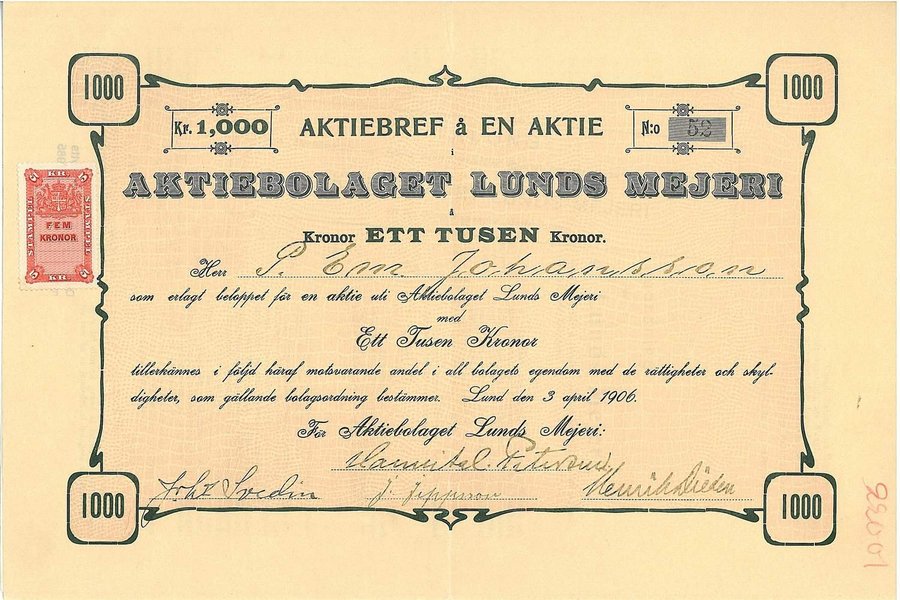 1000 1000
Kr. 1,000 AKTIEBREF å EN AKTIE N:o 52
i
AKTIEBOLAGET LUNDS MEJERI
à
Kronor ETT TUSEN Kronor.
Herr P. Em Johansson
som erlagt beloppet för en aktie uti Aktiebolaget Lunds Mejeri
med
Ett Tusen Kronor
tillerkännes i följd häraf motsvarande andel i all bolagets egendom med de rättigheter och skyl-
digheter, som gällande bolagsordning bestämmer. Lund den 3 april 1906.
För Aktiebolaget Lunds Mejeri:
Joh Svedin J. Jeppsson Henrik Dieden
1000 1000
5 KR 5
STÄMPEL STÄMPEL
FEM
KRONOR
5 KR 5